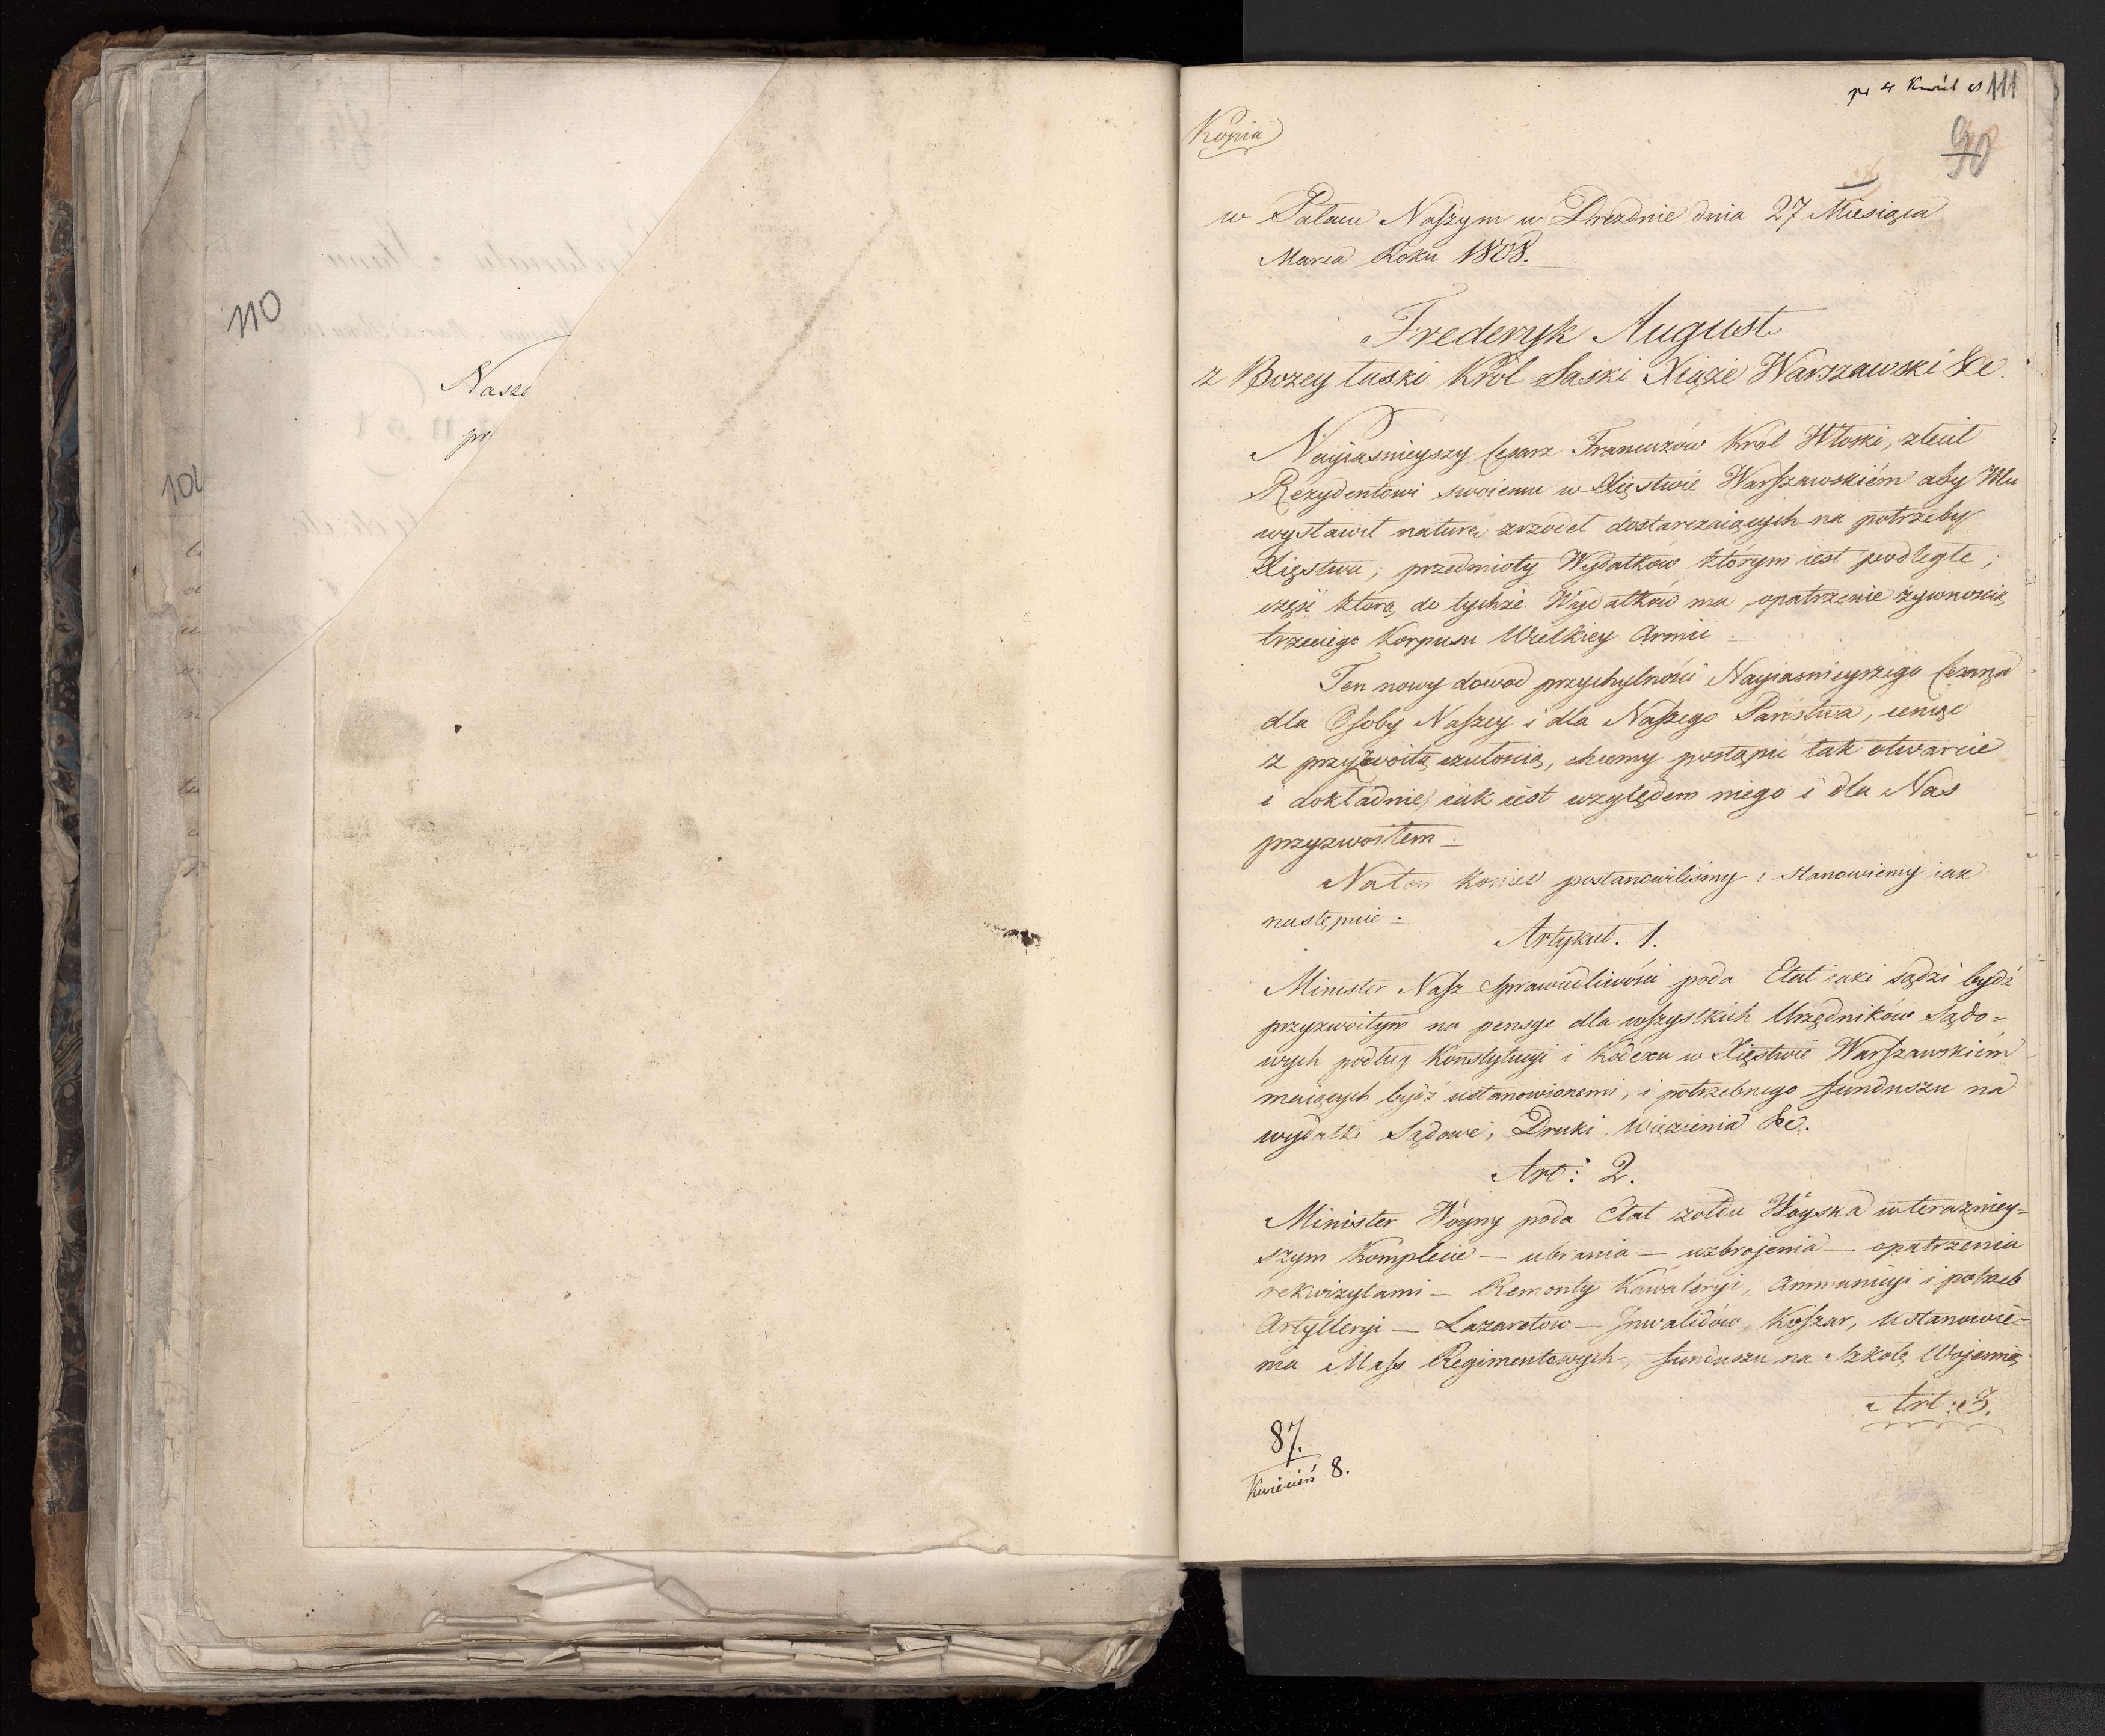 110
Nasze
pr
104
111
90
Kopia
w Pałacu Naszym w Dreznie dnia 27 Miesiąca
Marca Roku 1808.
Frederyk August
z Bozey łaski Król Saski Xiąże Warszawski &c.
Nayiasnieyszy Cesarz Francuzów Król Włoski, zlecił
Rezydentowi swoiemu w Xięstwie Warszawskiém aby Mu
wystawił naturę zrzodeł dostarczaiących na potrzeby
Xięstwa; przedmioty Wydatków którym iest podległe;
część którą do tychże Wydatków ma opatrzenie żywnością
trzeciego Korpusu Wielkiey Armii.
Ten nowy dowod przychylności Nayiasnieyszego Cesarza
dla Osoby Naszey i dla Naszego Państwa, ceniąc
z przyzwoitą czułością, chcemy postąpić tak otwarcie
i dokładnie, iak iest względem niego i dla Nas
przyzwoitem.
Na ten koniec postanowiliśmy i stanowiemy iak
następuie.
Artykuł. 1.
Minister Nasz Sprawiedliwości poda Etat iaki sądzi bydź
przyzwoitym na pensye dla wszystkich Urzędników Sądo=
wych podług Konstytucyi i Kodexu w Xięstwie Warszawskiém
maiących bydź ustanowionemi, i potrzebnego funduszu na
wydatki Sądowe, Druki, Więzienia &c.
Art: 2.
Minister Woyny poda Etat żołdu Woyska w terazniey=
szym Komplecie – ubrania – uzbrojenia – opatrzenia
rekwizytami – Remonty Kawaleryi, Ammunicyi i potrzeb
Artylleryi – Lazaretow – Inwalidów, Koszar, ustanowie=
nia Mass Regimentowych, funduszu na Szkołę Wojenną
Art: 3.
87.
Kwiecień 8.